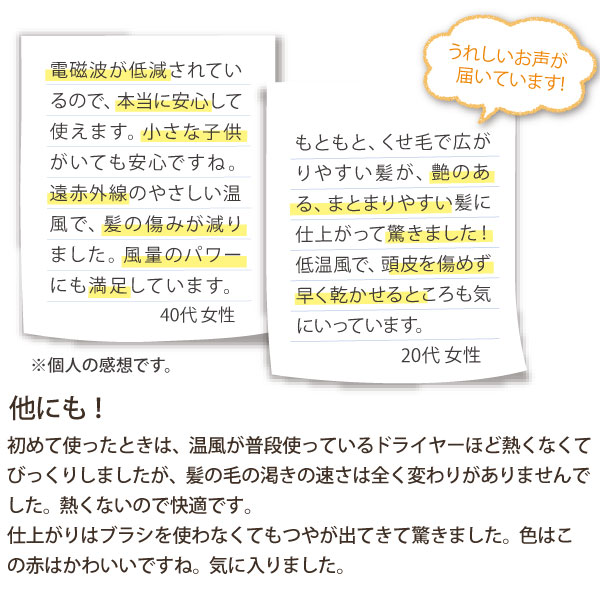 うれしいお声が
届いています!
電磁波が低減されてい
るので、本当に安心して
使えます。小さな子供
がいても安心ですね。
遠赤外線のやさしい温
風で、髪の傷みが減り
ました。風量のパワー
にも満足しています。
40代 女性
もともと、くせ毛で広が
りやすい髪が、艶のあ
る、まとまりやすい髪に
仕上がって驚きました!
低温風で、頭皮を傷めず
早く乾かせるところも気
にいっています。
20代 女性
※個人の感想です。
他にも!
初めて使ったときは、温風が普段使っているドライヤーほど熱くなくて
びっくりしましたが、髪の毛の渇きの速さは全く変わりがありませんで
した。熱くないので快適です。
仕上がりはブラシを使わなくてもつやが出てきて驚きました。色はこ
の赤はかわいいですね。気に入りました。